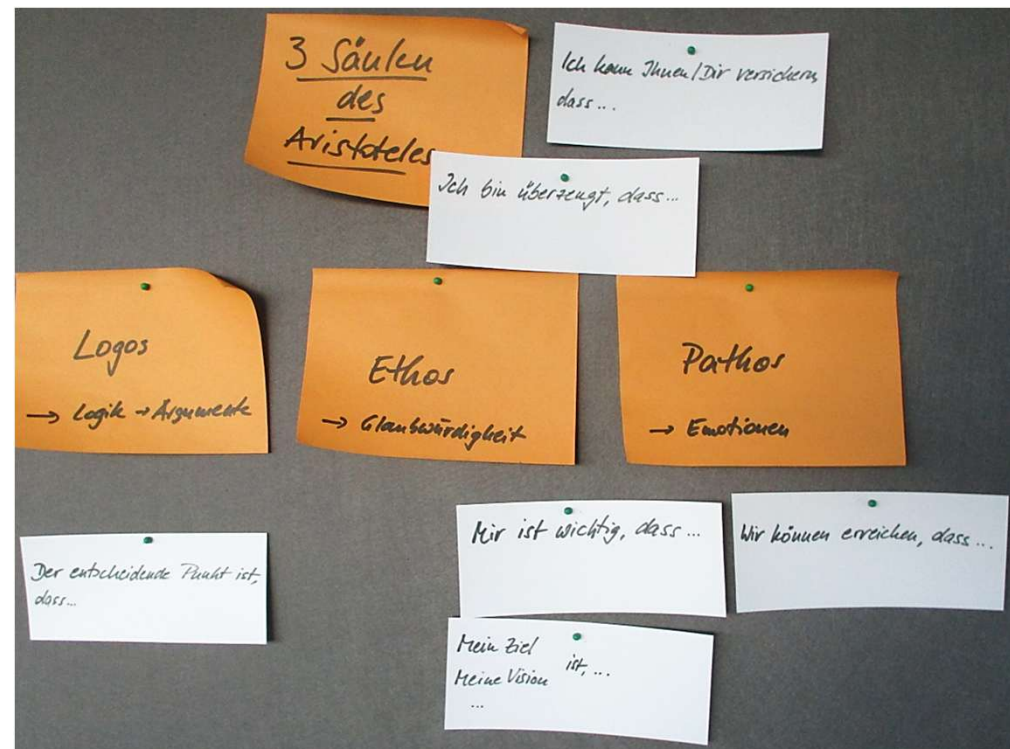 3 Säulen
des
Aristoteles
Ich kann Ihnen/Dir versichern,
dass...
Ich bin überzeugt, dass...
Logos
→ Logik → Argumente
Ethos
→ Glaubwürdigkeit
Pathos
→ Emotionen
Der entscheidende Punkt ist,
dass...
Mir ist wichtig, dass...
Wir können erreichen, dass...
Mein Ziel
ist, ...
Meine Vision
...